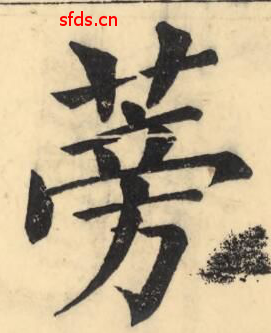 sfds.cn
蒡